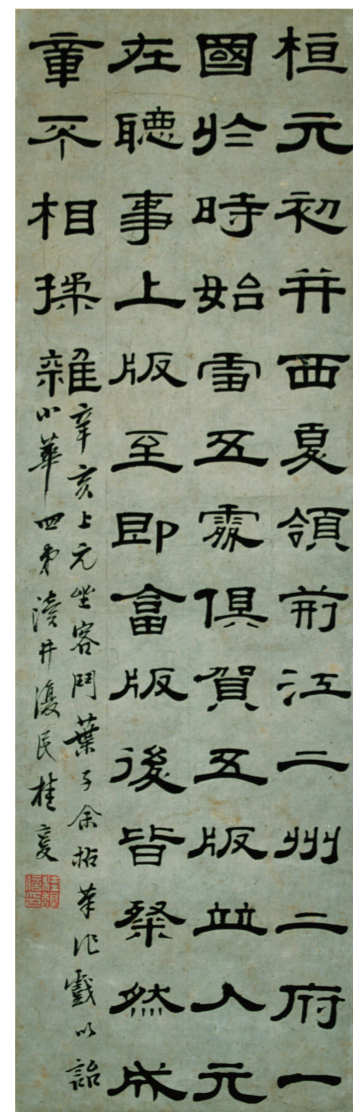 桓元初并西夏領荊江二州二府一
國於時始雪五處俱賀五版並入元
在聽事上版至即畣版後皆粲然成
章不相揉雜
辛亥上元坐客鬥葉子余拈筆作戲以詒
小華四弟瀆井復民桂馥